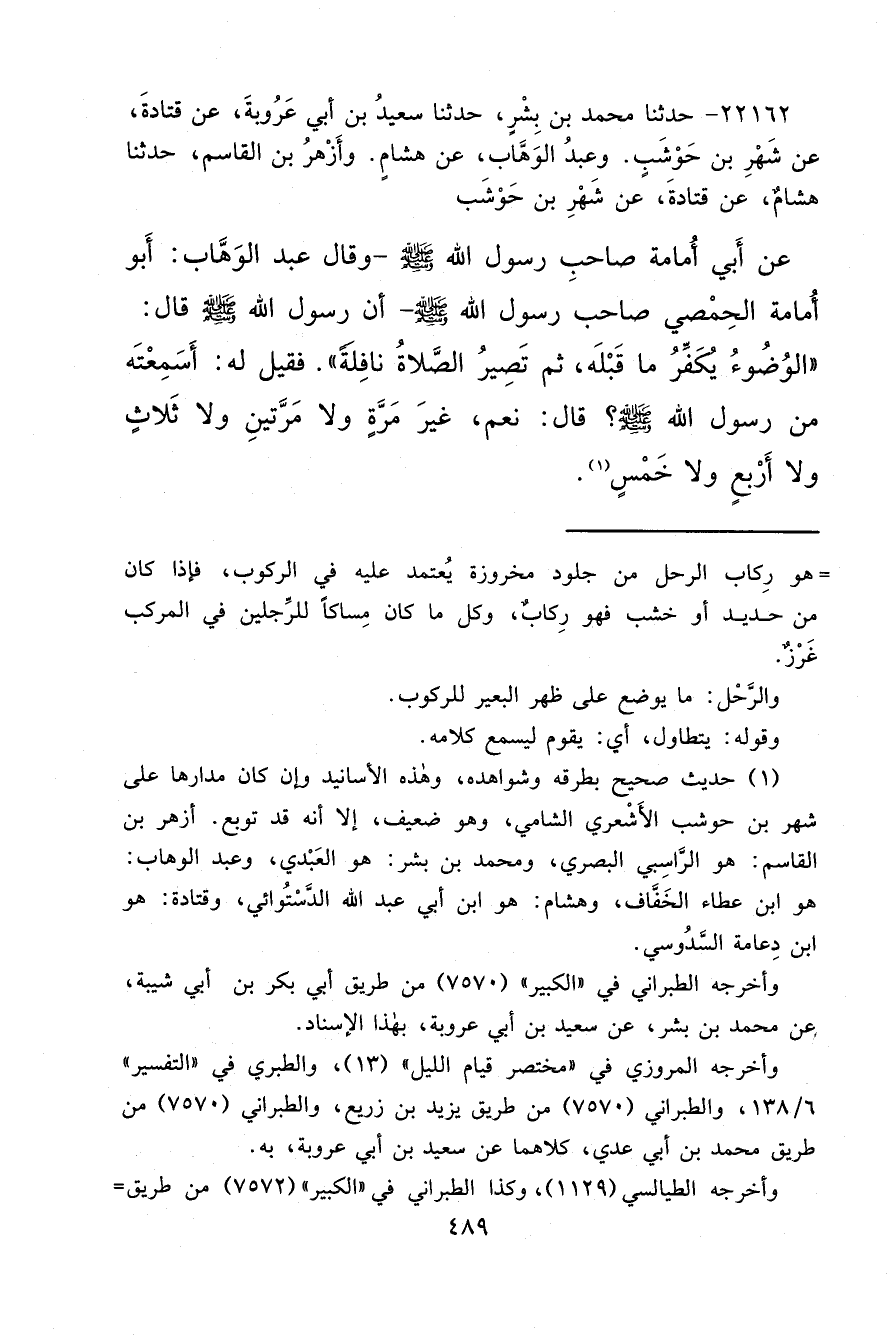 ٢٢١٦٢- حدثنا محمد بن بِشْرٍ، حدثنا سعيدُ بن أبي عَرُوبةَ، عن قتادةَ،
عن شَهْرِ بن حَوْشَبٍ. وعبدُ الوَهَّاب، عن هشامٍ. وأَزْهرُ بن القاسم، حدثنا
هشامٌ، عن قتادةَ، عن شَهْرِ بن حَوْشَب
عن أَبي أُمامة صاحبِ رسول الله ﷺ -وقال عبد الوَهَّاب: أَبو
أُمامة الحِمْصي صاحب رسول الله ﷺ- أن رسول الله ﷺ قال:
«الوُضُوءُ يُكَفِّرُ ما قَبْلَه، ثم تَصِيرُ الصَّلاةُ نافِلَةً». فقيل له: أَسَمِعْتَه
من رسول الله ﷺ؟ قال: نعم، غيرَ مَرَّةٍ ولا مَرَّتينِ ولا ثَلاثٍ
ولا أَرْبعٍ ولا خَمْسٍ(١).
= هو رِكاب الرحل من جلود مخروزة يُعتمد عليه في الركوب، فإذا كان
من حديد أو خشب فهو رِكابٌ، وكل ما كان مِساكاً للرِّجلين في المركب
غَرْزٌ.
والرَّحْل: ما يوضع على ظهر البعير للركوب.
وقوله: يتطاول، أي: يقوم ليسمع كلامه.
(١) حديث صحيح بطرقه وشواهده، وهٰذه الأسانيد وإن كان مدارها على
شهر بن حوشب الأَشْعري الشامي، وهو ضعيف، إلا أنه قد توبع. أزهر بن
القاسم: هو الرَّاسِبي البصري، ومحمد بن بشر: هو العَبْدي، وعبد الوهاب:
هو ابن عطاء الخَفَّاف، وهشام: هو ابن أبي عبد الله الدَّسْتُوائي، وقتادة: هو
ابن دِعامة السَّدُوسي.
وأخرجه الطبراني في «الكبير» (٧٥٧٠) من طريق أبي بكر بن أبي شيبة،
عن محمد بن بشر، عن سعيد بن أبي عروبة، بهٰذا الإسناد.
وأخرجه المروزي في «مختصر قيام الليل» (١٣)، والطبري في «التفسير»
١٣٨/٦، والطبراني (٧٥٧٠) من طريق يزيد بن زريع، والطبراني (٧٥٧٠) من
طريق محمد بن أبي عدي، كلاهما عن سعيد بن أبي عروبة، به.
وأخرجه الطيالسي (١١٢٩)، وكذا الطبراني في «الكبير» (٧٥٧٢) من طريق=
٤٨٩